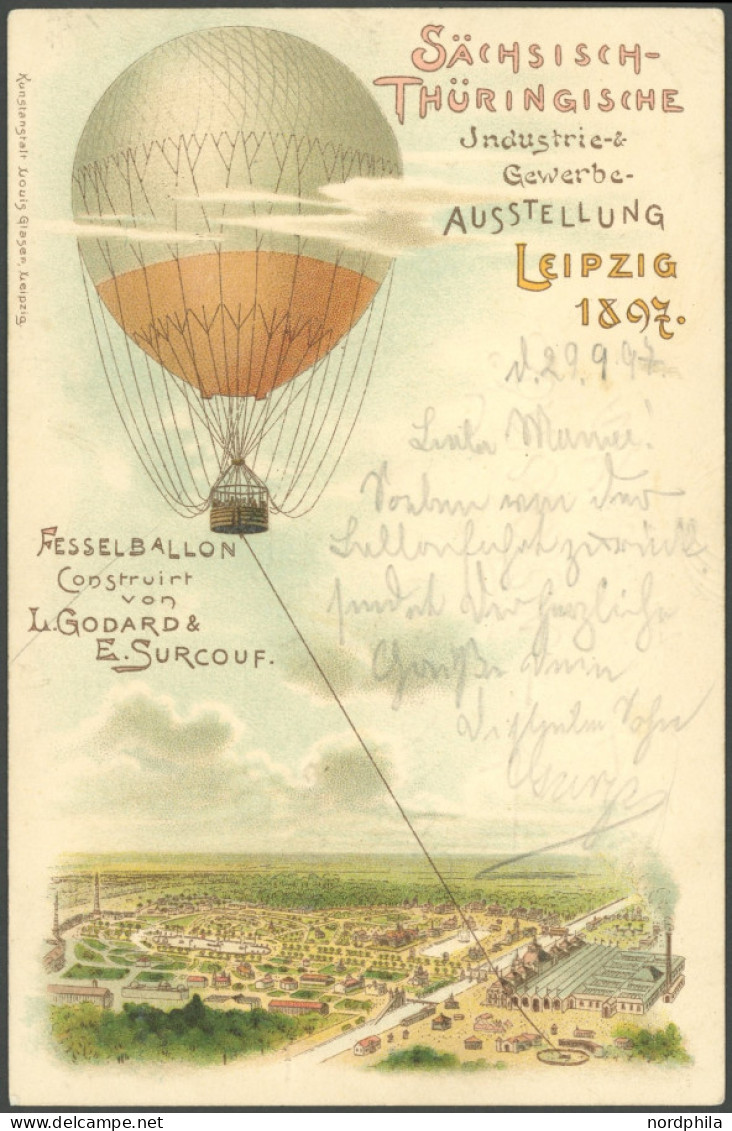 Kunstanstalt Louis Glaser, Leipzig
SÄCHSISCH-
THÜRINGISCHE
Industrie-&
Gewerbe-
AUSSTELLUNG
LEIPZIG
1897.
d. 29.9.97
Liebe Mama!
Soeben von der
Ballonfahrt zurück
sendet Dir herzliche
Grüße Dein
Sohn
FESSELBALLON
Construirt
von
L. GODARD &
E. SURCOUF.
nordphila